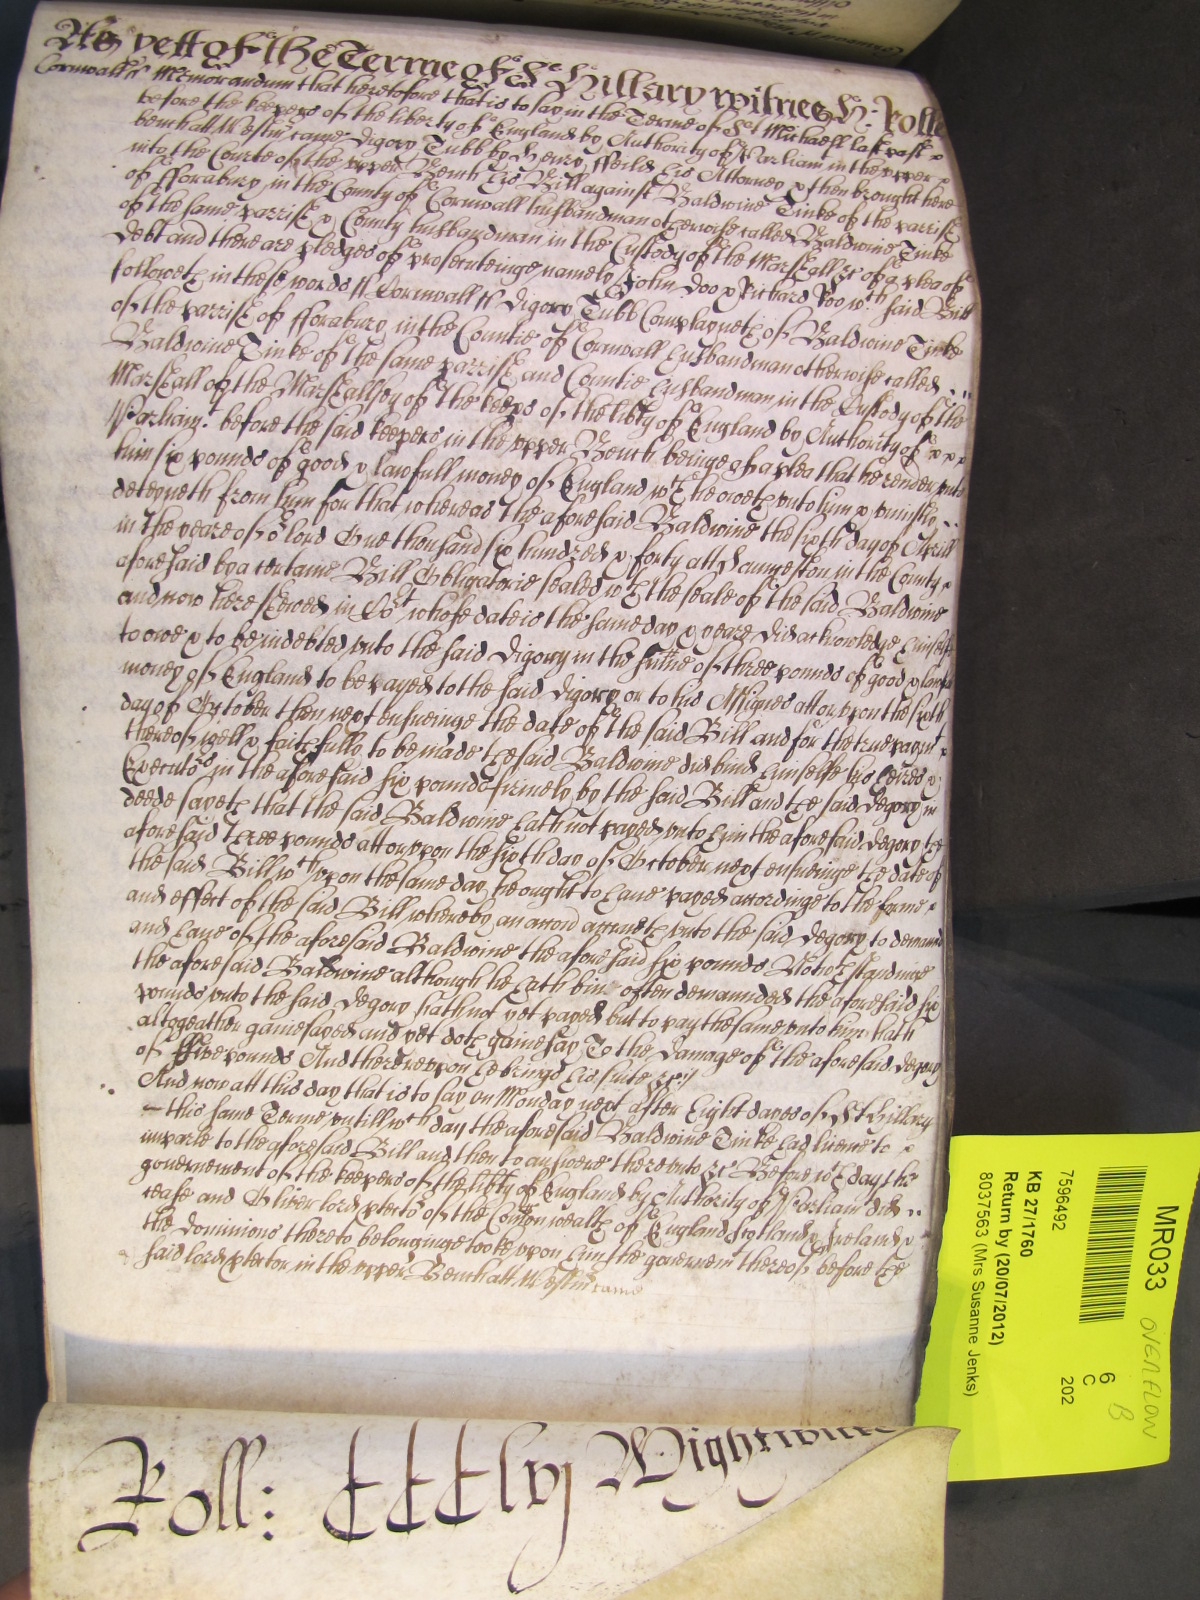 As yett of the Terme of St Hillary witnes H: Rolle
Cornwall ss Memorandum that heretofore that is to say in the Terme of St Michaell last past
before the keepers of the liberty of England by Authority of Parliam in the upper
bench att Westm came Digory Tubb by Henry ffeild his Attorney & then brought here
into the Courte of the upper Bench his Bill against Baldwine Tinke of the parrish
of fforabury in the County of Cornwall husbandman otherwise called Baldwine Tinke
of the same parrish & County husbandman in the Custody of the Marshall &c of a plea of
Debt and there are pledges of prosecuteinge namely John Doo & Richard Roo wch said Bill
followeth in these words ss Cornwall ss Digory Tubb Complayneth of Baldwine Tinke
of the parrish of fforabury in the Countie of Cornwall husbandman otherwise called
Baldwine Tinke of the same parrish and Countie husbandman in the Custody of the
Marshall of the Marshallsey of the keeps of the libty of England by Authority of
Parliamt before the said keepers in the upper Bench beinge of a plea that he render unto
him six pounds of good & lawfull money of England wch he oweth unto him & uniustly
deteyneth from him for that whereas the aforesaid Baldwine the sixth day of Aprill
in the yeare of or lord One thousand six hundred & forty att Launceston in the County
aforesaid by a certaine Bill Obligatorie sealed wth the seale of the said Baldwine
and now here shewed in Cort whose date is the same day & yeare did acknowledge himselfe
to owe & to be indebted unto the said Digory in the sume of three pounds of good & lawfull
money of England to be payed to the said Digory or to his Assignes att or upon the sixth
day of October then next ensueinge the date of the said Bill and for the true paymt
thereof well & faithfully to be made the said Baldwine did bind himselfe his heires &
Executors in the aforesaid six pounds firmely by the said Bill and the said Degory in
deede sayeth that the said Baldwine hath not payed unto him the aforesaid Degory the
aforesaid three pounds att or upon the sixth day of October next ensueinge the date of
the said Bill wch upon the same day he ought to have payed accordinge to the forme
and effect of the said Bill whereby an accon accrueth unto the said Degory to demand
and have of the aforesaid Baldwine the aforesaid six pounds Notwthstandinge
the aforesaid Baldwine although he hath bin often demaunded the aforesaid six
pounds unto the said Degory hath not yet payed but to pay the same unto him hath
altogeather gainesayed and yet doth gainesay To the damage of the aforesaid Degory
of ffive pounds And thereupon he brings his suite &c //
And now att this day that is to say on Monday next after Eight dayes of St Hillary
this same Terme untill wch day the aforesaid Baldwine Tinke had licence to
imparle to the aforesaid Bill and then to answere thereunto &c Before wch day the
governement of the keepers of the libty of England by Authority of Parliam did
cease and Oliver lord ptector of the Comonwealth of England Scotland & Ireland &
the dominions thereto belonginge tooke upon him the governemt thereof before the
said lord ptector in the upper Bench att Westm came
Roll: CCCClvj Wightwicke
MR033
OVERFLOW
B
6
C
202
7596492
KB 27/1760
Return by (20/07/2012)
8037563 (Mrs Susanne Jenks)